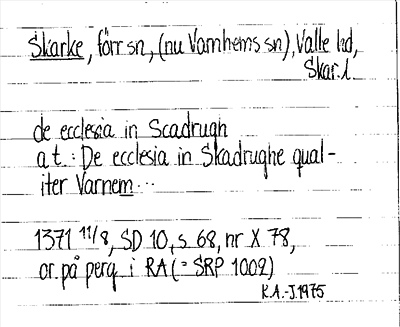 Skarke, förr sn, (nu Varnhems sn), Valle hd,
Skar. l.
de ecclesia in Scadrugh
a t.: De ecclesia in Skadrughe qual-
iter Varnem...
1371 11/8, SD 10, s 68, nr X 78,
or. på perg. i RA (= SRP 1002)
K.A.-J. 1975